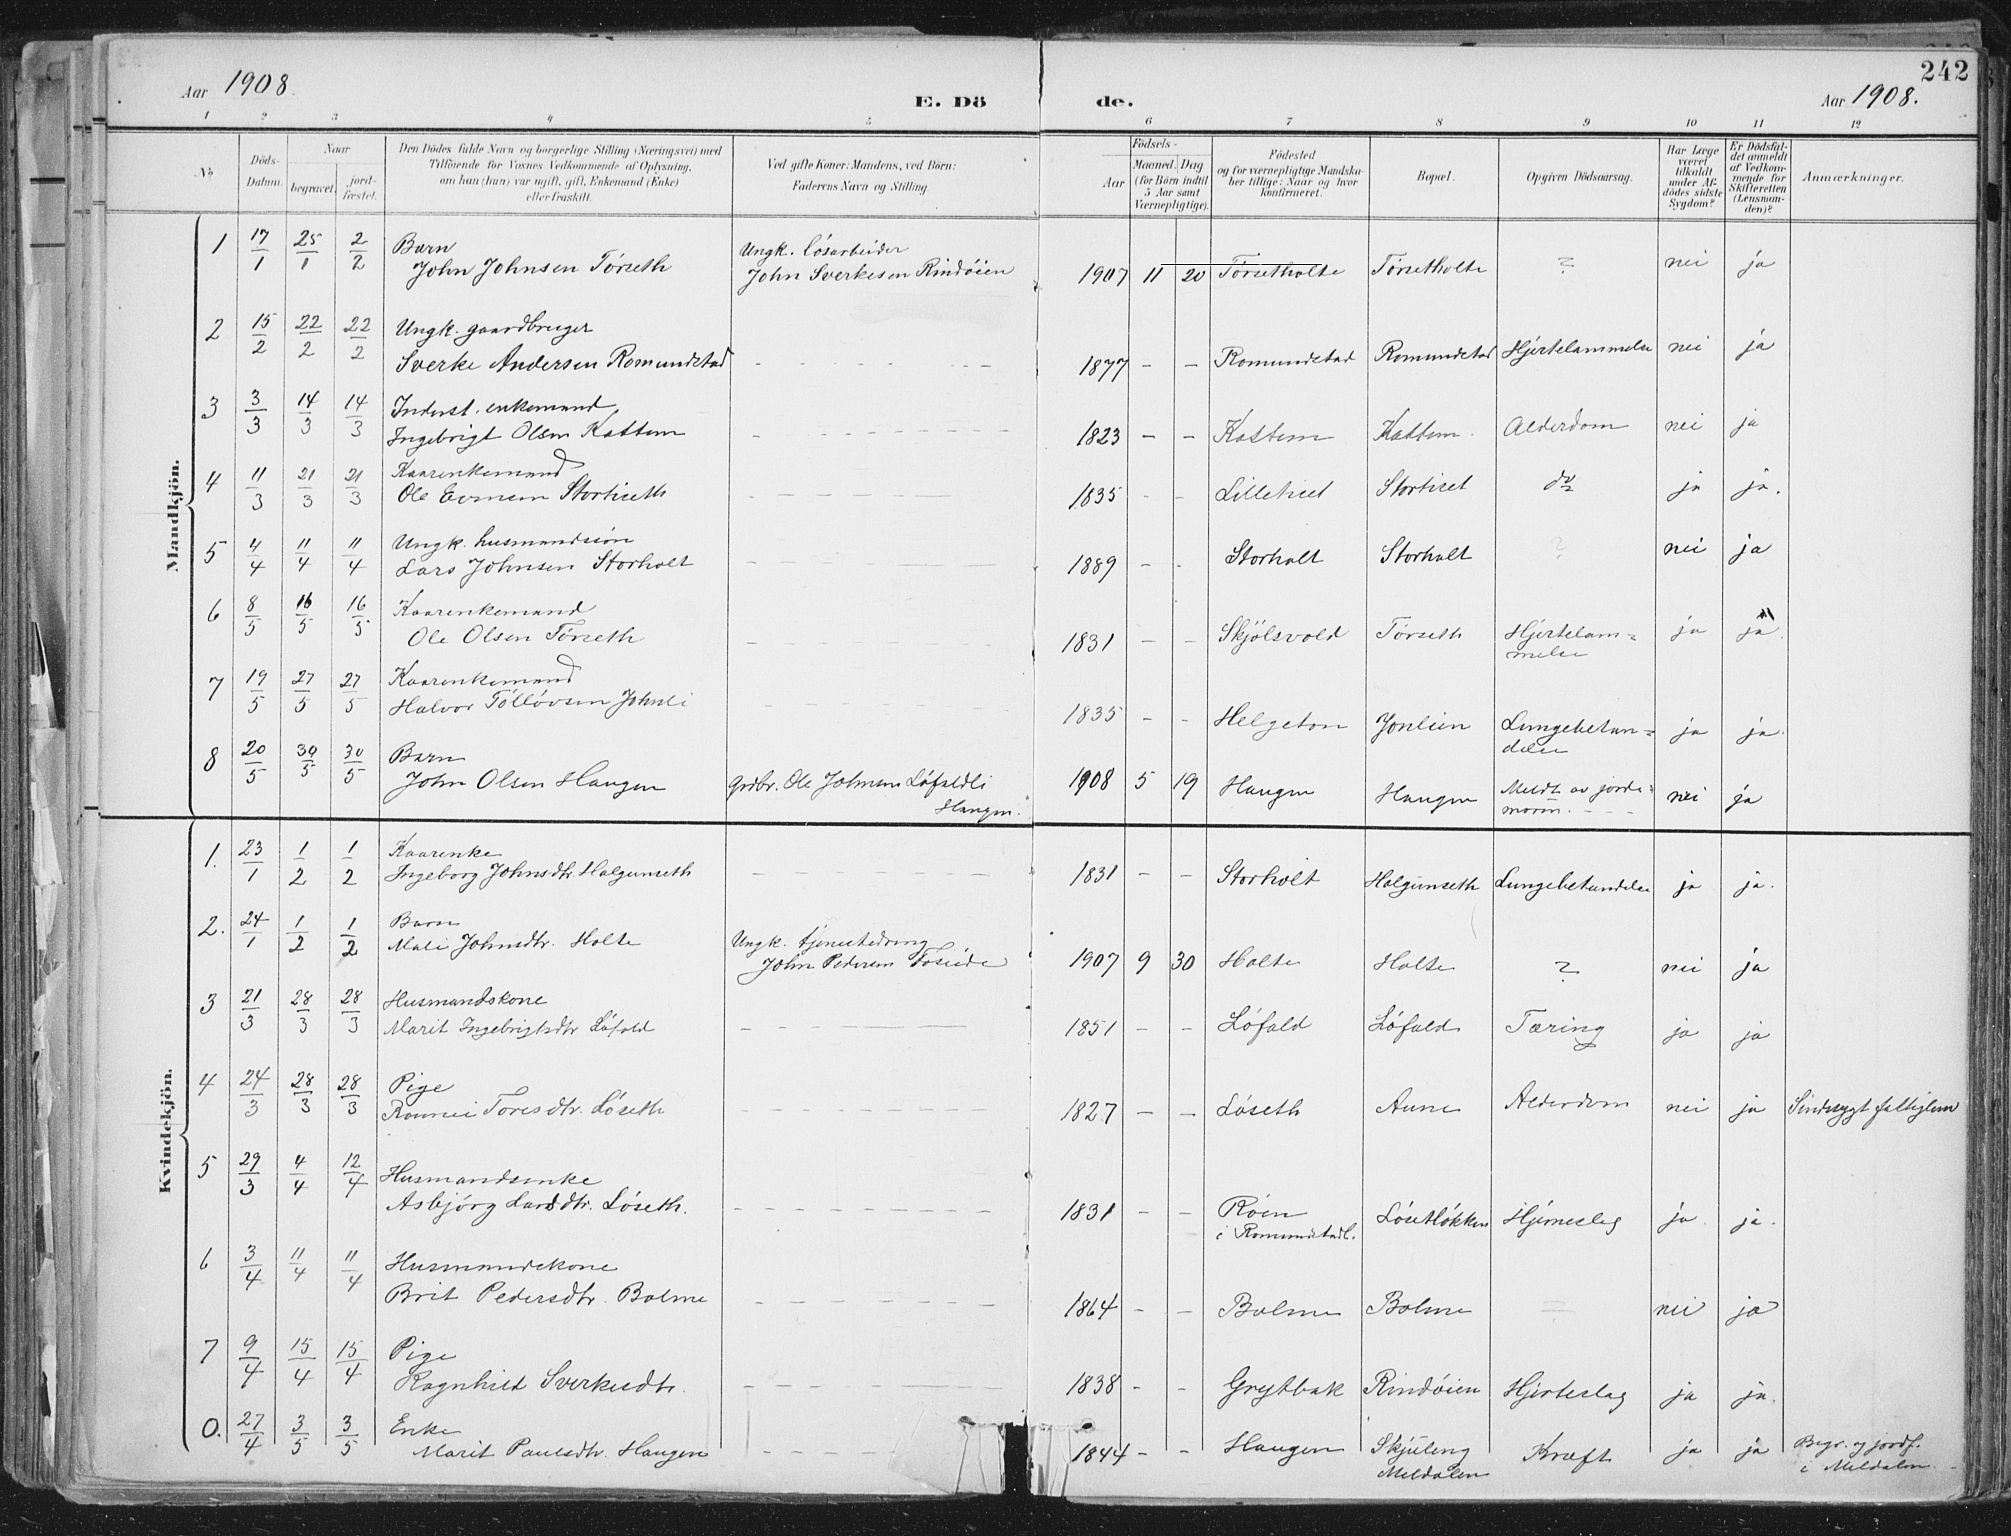 Aar 1908. E. Dö de. Aar 1908. 242
1 2 3 4 5 6 7 8 9 10 11 12
No. Döds-Datum. Naar begravet. jord-fæstet. Den Dödes fulde Navn og borgerlige Stilling (Næringsvei) med Tilföiende for Voxnes Vedkommende af Oplysning, om han (hun) var ugift, gift, Enkemand (Enke) eller fraskilt. Ved gifte Koner: Mandens, ved Börn: Faderens Navn og Stilling. Födsels- Aar Maaned. Dag (for Börn indtil 5 Aar samt Værnepligtige). Födested og for værnepligtige Mandska-ber tillige: Naar og hvor konfirmeret. Bopæl. Opgiven Dödsaarsag. Har Læge været tilkaldt under Af-dödes sidste Sygdom? Er Dödsfal-det anmeldt af Vedkom-mende for Skifteretten (Lensman-den)? Anmærkninger.
Mandkjön.
1 17/1 25/1 2/2 Barn Ungk. løsarbeider
John Johnsen Tørseth John Sverkesen Rindøien 1907 11 20 Tørsetholte Tørsetholte ? nei ja
2 15/2 22/2 22/2 Ungk. gaardbruger
Sverke Andersen Romundstad - - - 1877 - - Romundstad Romundstad Hjertelammelse nei ja
3 3/3 14/3 14/3 Inderst. enkemand
Ingebrigt Olsen Kattem - - - 1823 - - Kattem Kattem. Alderdom nei ja
4 11/3 21/3 21/3 Kaarenkemand
Ole Evensen Stortiseth - - - 1835 - - Lilletiset Stortiset do ja ja.
5 4/4 11/4 11/4 Ungk. husmandssøn
Lars Johnsen Storholt - - - 1889 - - Storholt Storholt ? nei ja
6 8/5 16/5 16/5 Kaarenkemand
Ole Olsen Tørseth - - - 1831 - - Skjølsvold Tørseth Hjertelam=
melse ja ja.
7 19/5 27/5 27/5 Kaarenkemand
Halvor Tølløvsen Johnli - - - 1835 - - Helgeton Jonlien Lungebetæn=
delse ja ja.
8 20/5 30/5 30/5 Barn
John Olsen Haugen Grdbr. Ole Johnsen Løfaldli
Haugen. 1908 5 19 Haugen Haugen Meldt av jorde=
moren. - - - nei ja
Kvindekjön.
1. 23/1 1/2 1/2 Kaarenke
Ingeborg Johnsdtr Halgunseth - - - 1831 - - Storholt Halgunseth Lungebetændelse ja ja.
2. 24/1 1/2 1/2 Barn Ungk. tjenestedreng
Mali Johnsdtr. Holte John Pedersen Foseide 1907 9 30 Holte Holte ? nei ja
3 21/3 28/3 28/3 Husmandskone
Marit Ingebrigtsdtr Løfald - - - 1851 - - Løfald Løfald Tæring ja ja
4 24/3 28/3 28/3 Pige
Ronnei Toresdtr. Løseth - - - 1827 - - Løseth Aune Alderdom nei ja Sindssygt fattiglem
5 29/3 4/4 12/4 Husmandsenke
Asbjørg Larsdtr. Løseth. - - - 1831 - - Røen
i Romundstadl. Løsetløkken Hjerneslag ja ja.
6 3/4 11/4 11/4 Husmandskone
Brit Pedersdtr. Bolme - - - 1864 - - Bolme Bolme = nei ja
7 9/4 15/4 15/4 Pige
Ragnhild Sverkesdtr. - - - 1838 - - Grytbak Rindøien Hjerteslag ja ja.
0. 27/4 3/5 3/5 Enke
Marit Paulsdtr. Haugen - - - 1844 - - Haugen Skjuleng
Meldalen Kræft ja ja Begr. og jordf.
i Meldalen